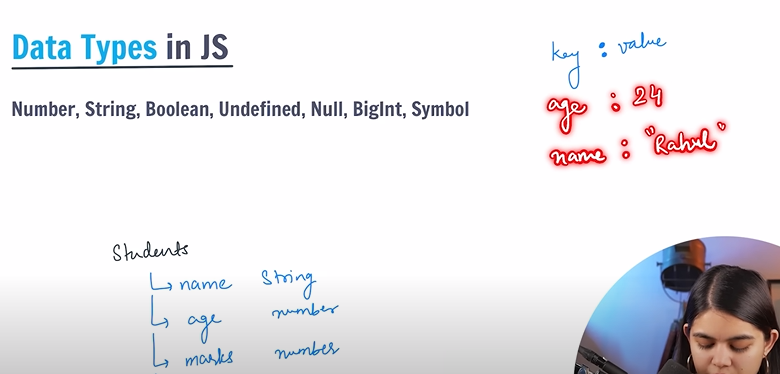 Data Types in JS
Number, String, Boolean, Undefined, Null, BigInt, Symbol
key : value
age : 24
name : "Rahul"
Students
name String
age number
marks number